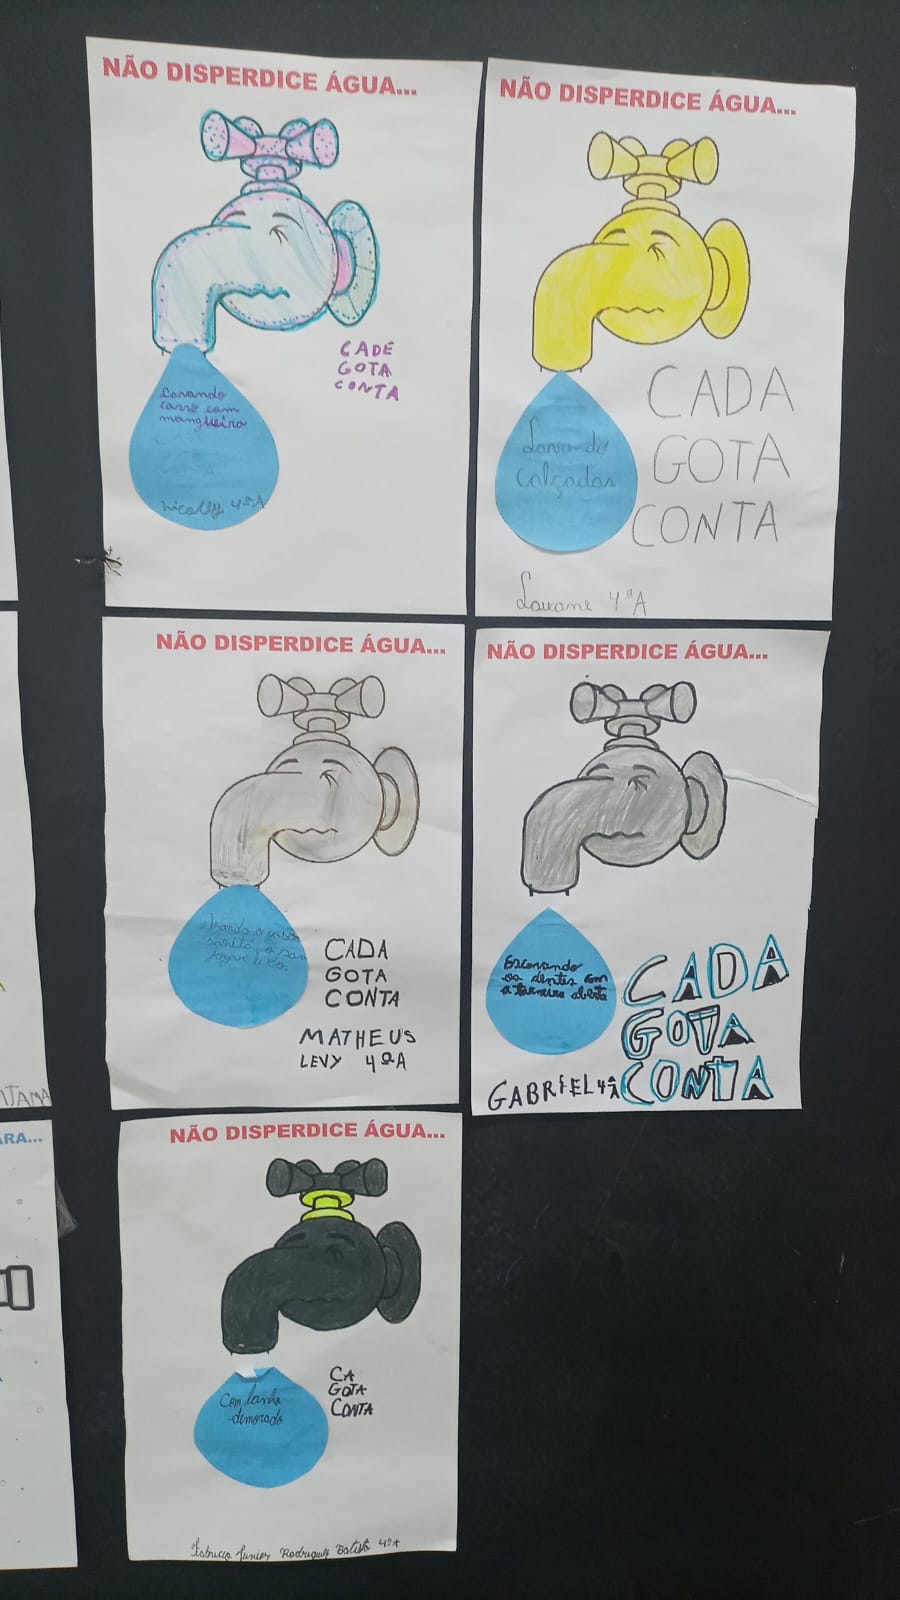 NÃO DISPERDICE ÁGUA...
CADÉ
GOTA
CONTA
Lavando
carro com
mangueira
Nicolly 4ºA
NÃO DISPERDICE ÁGUA...
CADA
GOTA
CONTA
Lavando
Calçadas
Lauane 4ªA
NÃO DISPERDICE ÁGUA...
CADA
GOTA
CONTA
MATHEUS
LEVY 4ºA
NÃO DISPERDICE ÁGUA...
Escovando
os dentes com
a torneira aberta
CADA
GOTA
CONTA
GABRIEL 4ªA
NÃO DISPERDICE ÁGUA...
Com banho
demorado
CA
GOTA
CONTA
Fabricio Junior Rodrigues Batista 4ºA
NTAMA
ARA...